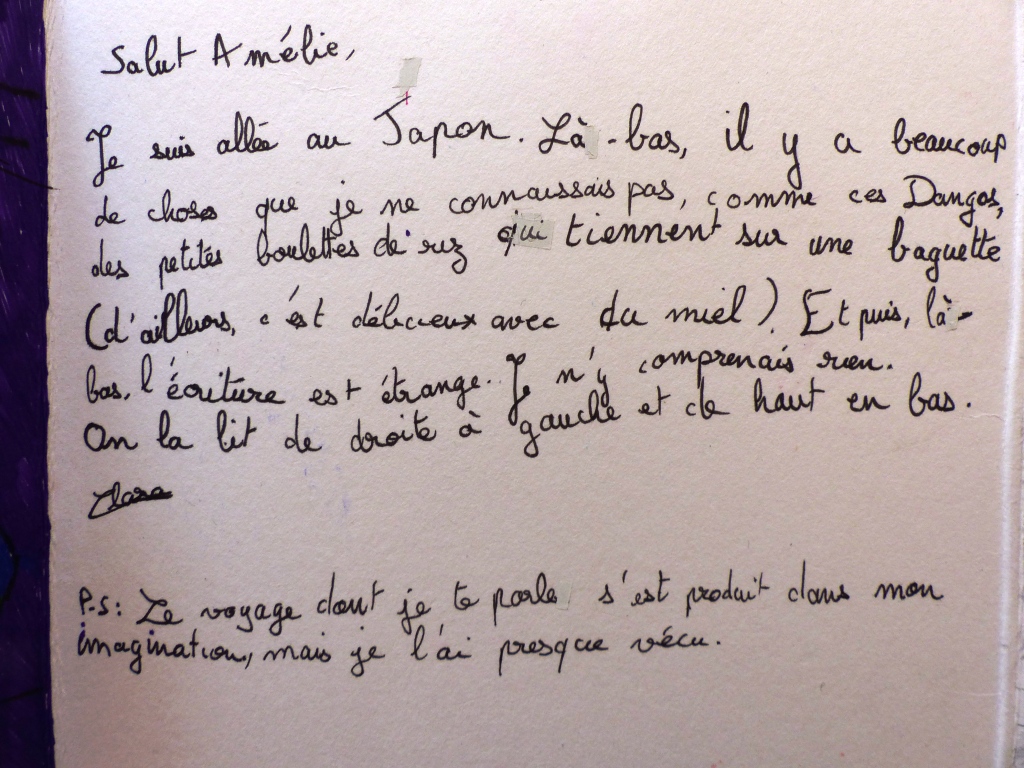 Salut Amélie,
Je suis allée au Japon. Là-bas, il y a beaucoup
de choses que je ne connaissais pas, comme ces Dangos,
des petites boulettes de riz qui tiennent sur une baguette
(d'ailleurs, c'est délicieux avec du miel). Et puis, là-
bas, l'écriture est étrange. Je n'y comprenais rien.
On la lit de droite à gauche et de haut en bas.
Clara
P.S: Le voyage dont je te parle s'est produit dans mon
imagination, mais je l'ai presque vécu.